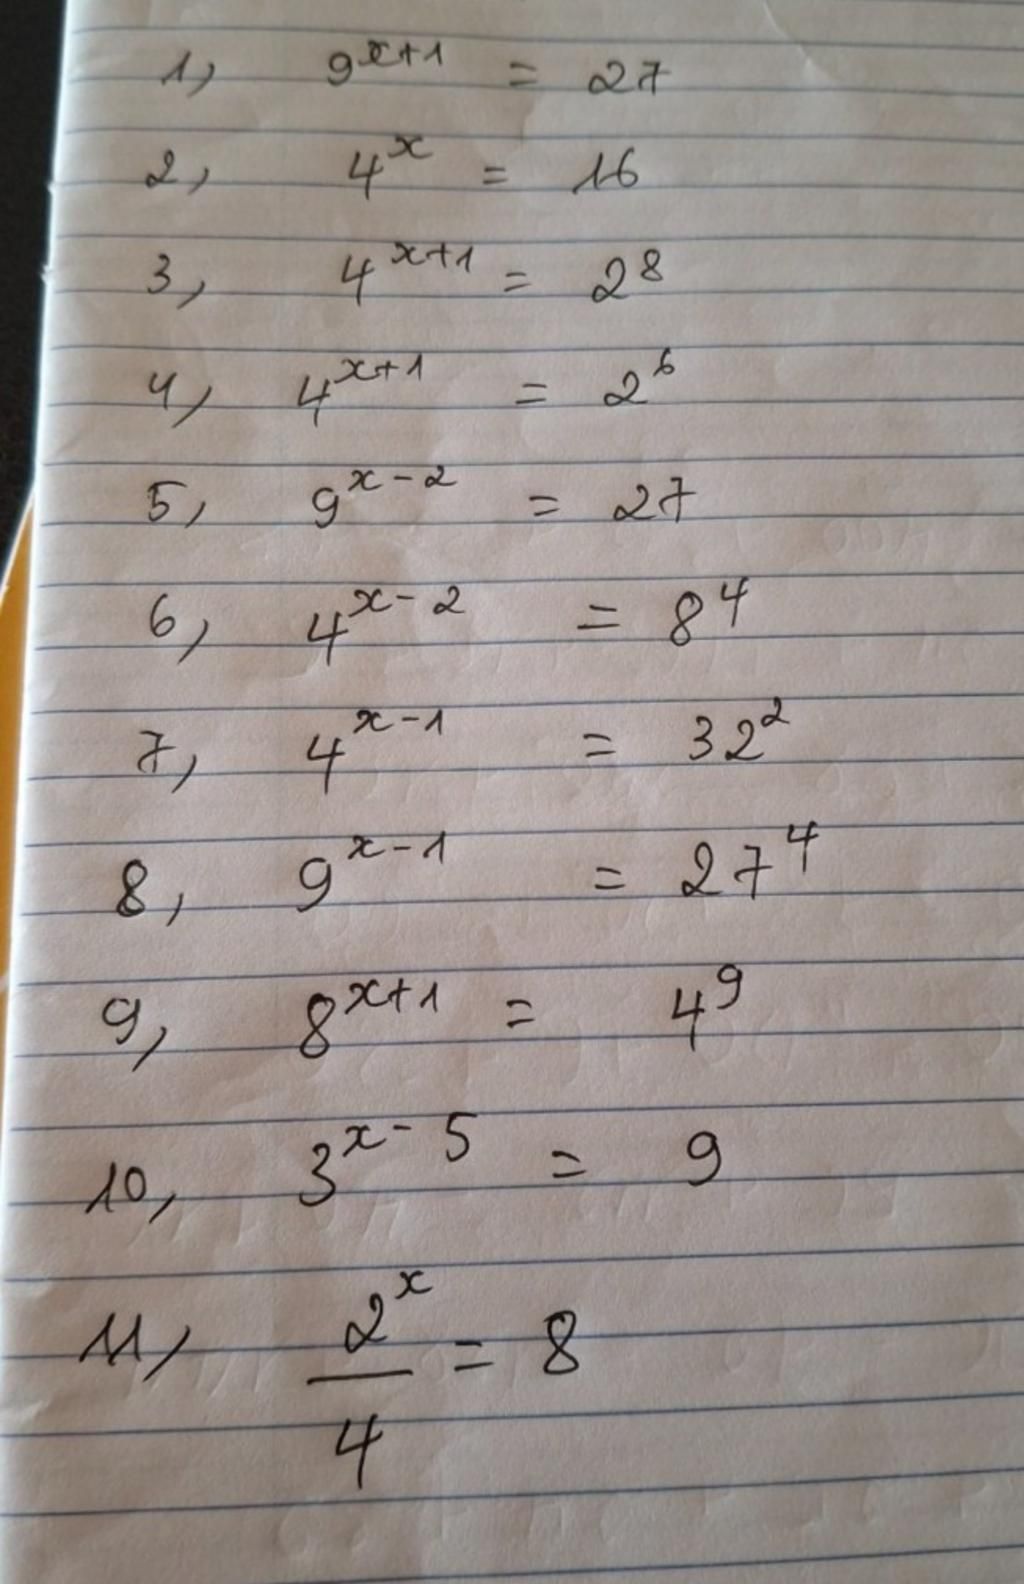 1, 9^{x+1} = 27
2, 4^x = 16
3, 4^{x+1} = 2^8
4, 4^{x+1} = 2^6
5, 9^{x-2} = 27
6, 4^{x-2} = 8^4
7, 4^{x-1} = 32^2
8, 9^{x-1} = 27^4
9, 8^{x+1} = 4^9
10, 3^{x-5} = 9
11, \frac{2^x}{4} = 8